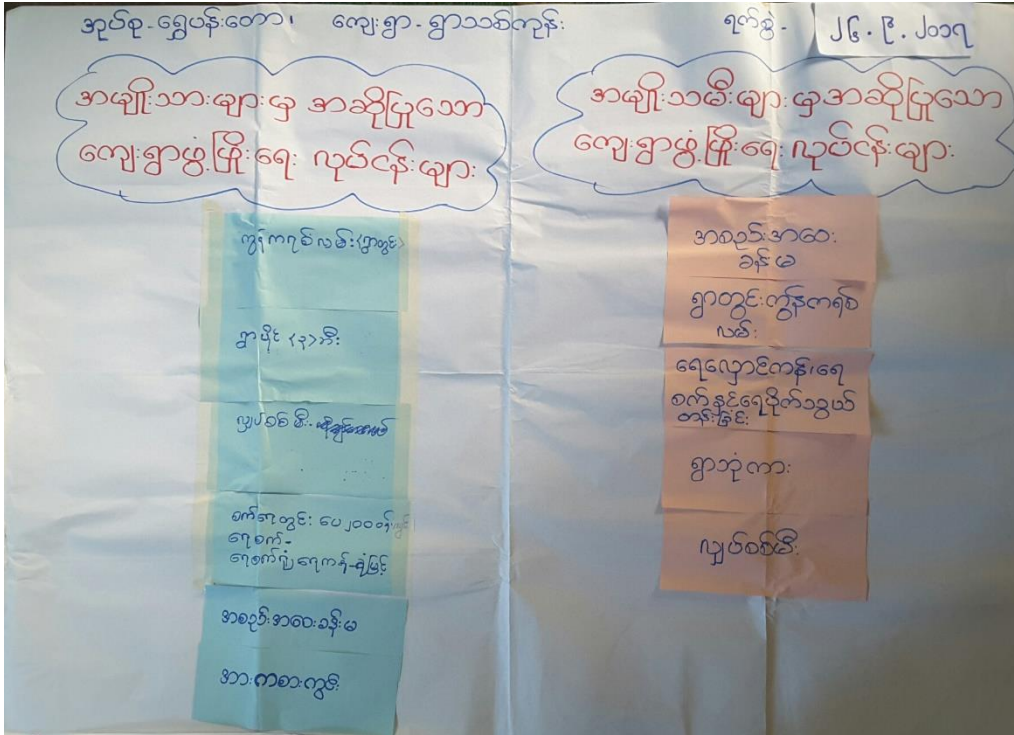 အုပ်စု-ရွှေပန်းတော၊ ကျေးရွာ-ရွာသစ်ကုန်း ရက်စွဲ- ၂၄.၉.၂၀၁၇
အမျိုးသားများမှ အဆိုပြုသော
ကျေးရွာဖွံ့ဖြိုးရေး လုပ်ငန်းများ
ကွန်ကရစ်လမ်း(ရွာတွင်း)
ရွာပိုင် (၃)ဘီး
လျှပ်စစ်မီး
စက်ရေတွင်း ပေ ၂၀၀
ရေစက်-
ရေစက်ရုံ ရေကန်-ရုံဖြင့်
အစည်းအဝေးခန်းမ
အားကစားကွင်း
အမျိုးသမီးများမှအဆိုပြုသော
ကျေးရွာဖွံ့ဖြိုးရေး လုပ်ငန်းများ
အစည်းအဝေး
ခန်းမ
ရွာတွင်းကွန်ကရစ်
လမ်း
ရေလှောင်ကန်၊ရေ
စက်နှင့်ရေပိုက်သွယ်
တန်းခြင်း
ရွာဘုံကား
လျှပ်စစ်မီး